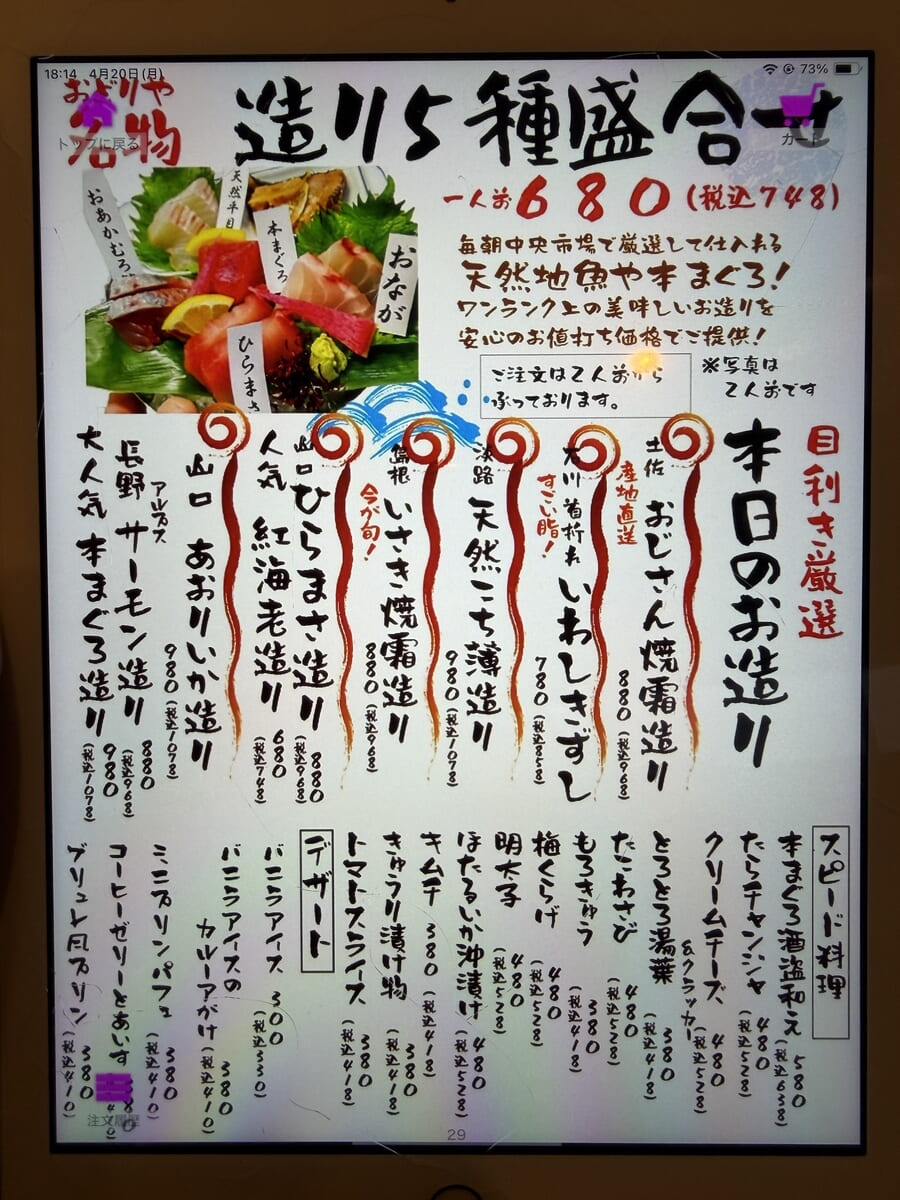 18:14 4月20日(月)
73%
おどりや
名物
トップに戻る
造り5種盛合せ
カート
一人前680(税込748)
毎朝中央市場で厳選して仕入れる
天然地魚や本まぐろ!
ワンランク上の美味しいお造りを
安心のお値打ち価格でご提供!
ご注文は2人前から
承っております。
※写真は
2人前です
おあかむろ
天然平目
本まぐろ
おなが
ひらまさ
目利き厳選
本日のお造り
土佐 おじさん焼霜造り
産地直送
880(税込968)
首折れ いわしきずし
すごい脂!
780(税込858)
淡路 天然こち薄造り
980(税込1078)
島根 いさき焼霜造り
今が旬!
880(税込968)
山口 ひらまさ造り
880(税込968)
人気 紅海老造り
680(税込748)
山口 あおりいか造り
980(税込1078)
長野アルプスサーモン造り
880(税込968)
大人気 本まぐろ造り
980(税込1078)
スピード料理
本まぐろ酒盗和え 580(税込638)
たらチャンジャ 480(税込528)
クリームチーズ&クラッカー 480(税込528)
とろとろ湯葉 380(税込418)
たこわさび 480(税込528)
もろきゅう 380(税込418)
梅くらげ 480(税込528)
明太子 480(税込528)
ほたるいか沖漬け 480(税込528)
キムチ 380(税込418)
きゅうり漬け物 380(税込418)
トマトスライス 380(税込418)
デザート
バニラアイス 300(税込330)
バニラアイスの
カルーアがけ 380(税込410)
ミニプリンパフェ 380(税込410)
コーヒーゼリーとあいす
ブリュレ風プリン 380(税込410)
注文履歴
29